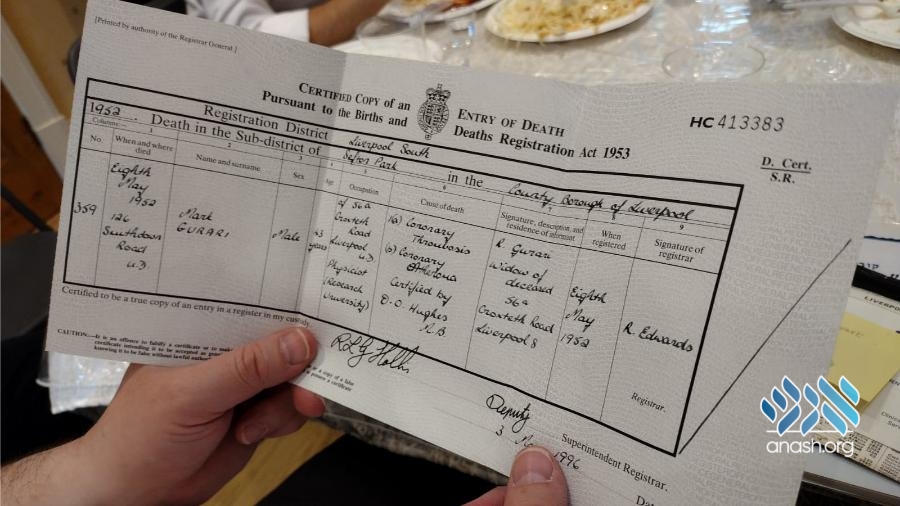 [Printed by authority of the Registrar General.]
CERTIFIED COPY OF AN ENTRY OF DEATH
Pursuant to the Births and Deaths Registration Act 1953
HC 413383
D. Cert.
S.R.
Registration District Liverpool South
1952. Death in the Sub-district of Sefton Park in the County Borough of Liverpool
Columns:— 1 2 3 4 5 6 7 8 9
No. When and where died Name and surname Sex Age Occupation Cause of death Signature, description, and residence of informant When registered Signature of registrar
359
Eighth
May
1952
126
Smithdown
Road
U.D.
Mark
GURARI
Male
43
years
of 56a
Croxteth
Road
Liverpool
U.D.
Physicist
(Research
University)
I(a) Coronary
Thrombosis
(b) Coronary
Atheroma
Certified by
D. O. Hughes
M.B.
R. Gurari
Widow of
deceased
56a
Croxteth Road
Liverpool 8
Eighth
May
1952
R. Edwards
Registrar.
Certified to be a true copy of an entry in a register in my custody.
CAUTION:—It is an offence to falsify a certificate or to
certificate intending it to be accepted as
knowing it to be false without lawful
as a copy of a false
Deputy
Superintendent Registrar.
3 1996
LIVERPOOL
anash.org